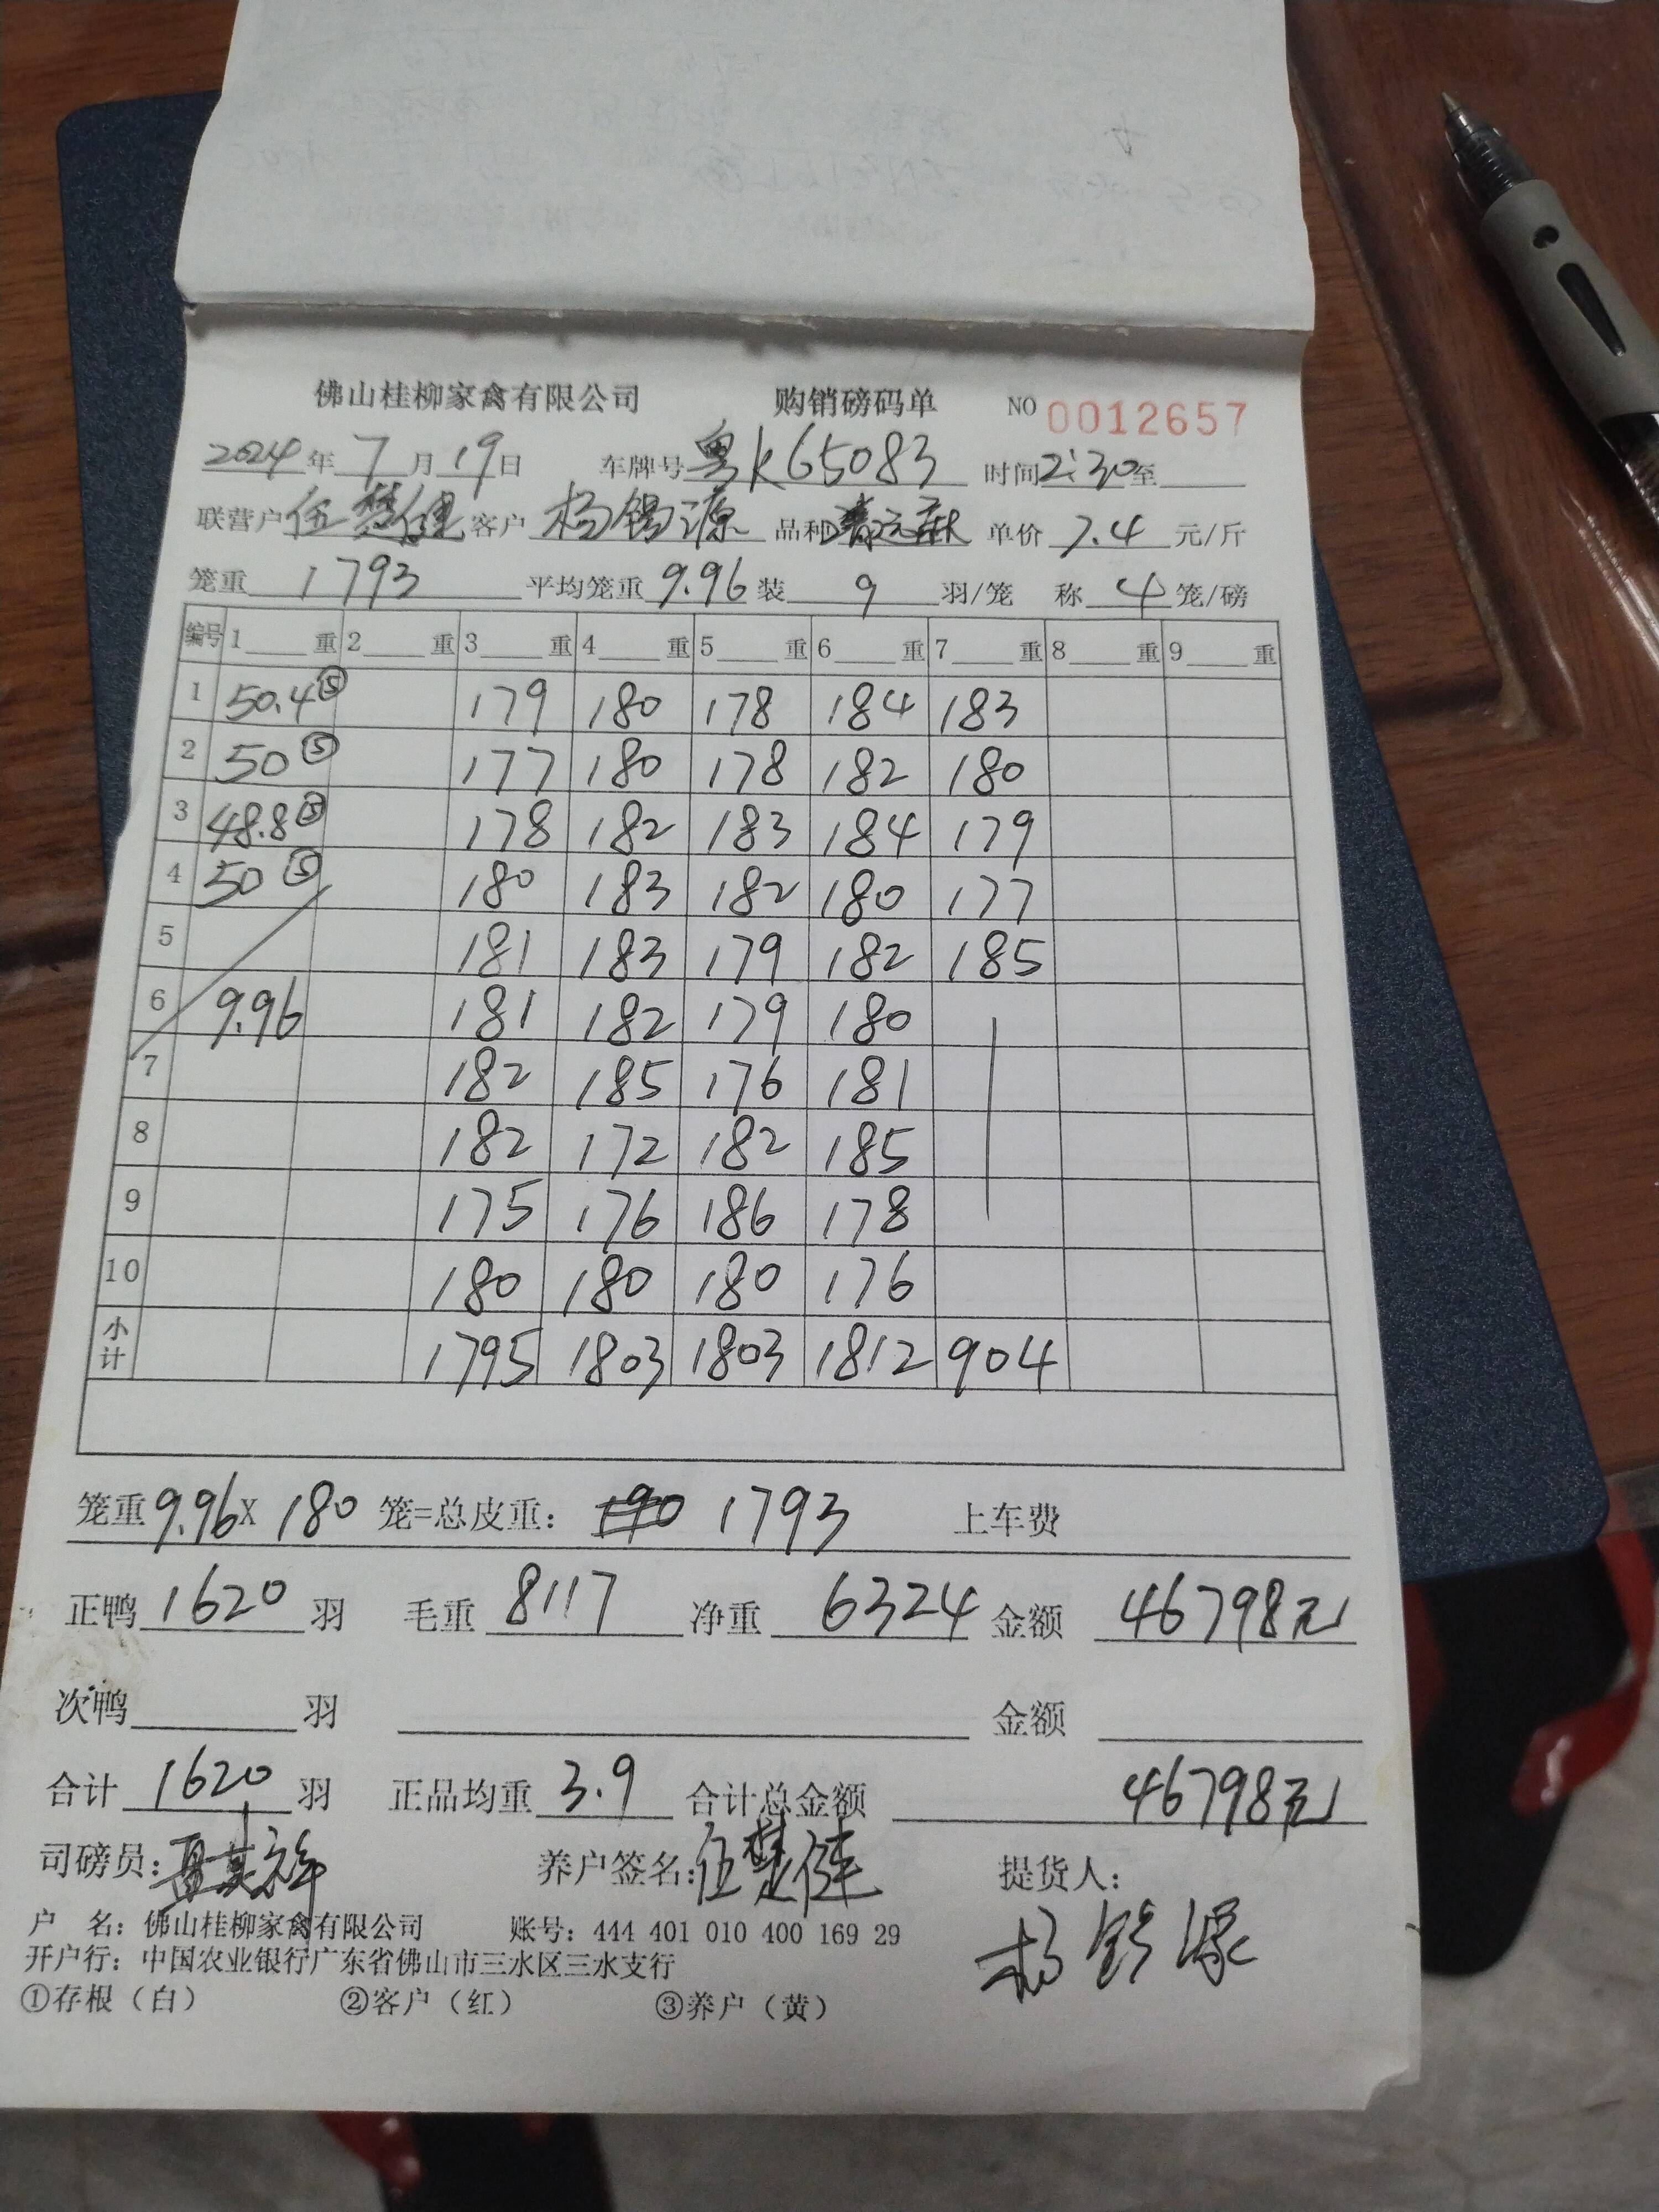 佛山桂柳家禽有限公司 购销磅码单 NO 0012657
2024年 7月 19日 车牌号 粤K65083 时间 2:30 至
联营户 伍楚健 客户 杨锡源 品种 单价 7.4 元/斤
笼重 1793 平均笼重 9.96 装 9 羽/笼 称 4 笼/磅
编号 1 重 2 重 3 重 4 重 5 重 6 重 7 重 8 重 9 重
1 50.4⑤ 179 180 178 184 183
2 50⑤ 177 180 178 182 180
3 48.8⑤ 178 182 183 184 179
4 50⑤ 180 183 182 180 177
5 181 183 179 182 185
6 9.96 181 182 179 180
7 182 185 176 181
8 182 172 182 185
9 175 176 186 178
10 180 180 180 176
小计 1795 1803 1803 1812 904
笼重 9.96 X 180 笼=总皮重: 1793 上车费
正鸭 1620 羽 毛重 8117 净重 6324 金额 46798元
次鸭 羽 金额
合计 1620 羽 正品均重 3.9 合计总金额 46798元
司磅员: 养户签名: 伍楚健 提货人:
杨锡源
户 名: 佛山桂柳家禽有限公司 账号: 444 401 010 400 169 29
开户行: 中国农业银行广东省佛山市三水区三水支行
①存根（白） ②客户（红） ③养户（黄）